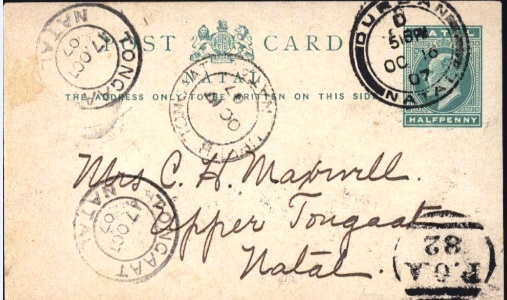 POST CARD
NATAL
THE ADDRESS ONLY TO BE WRITTEN ON THIS SIDE
NATAL
HALFPENNY
DURBAN
D
5 15 PM
OC 16
07
NATAL
TONGAAT
17 OCT
07
NATAL
OC
NATAL
Mrs C. H. Maxwell.
Upper Tongaat
Natal.
TONGAAT
17 OCT
07
NATAL
P.O.A
82